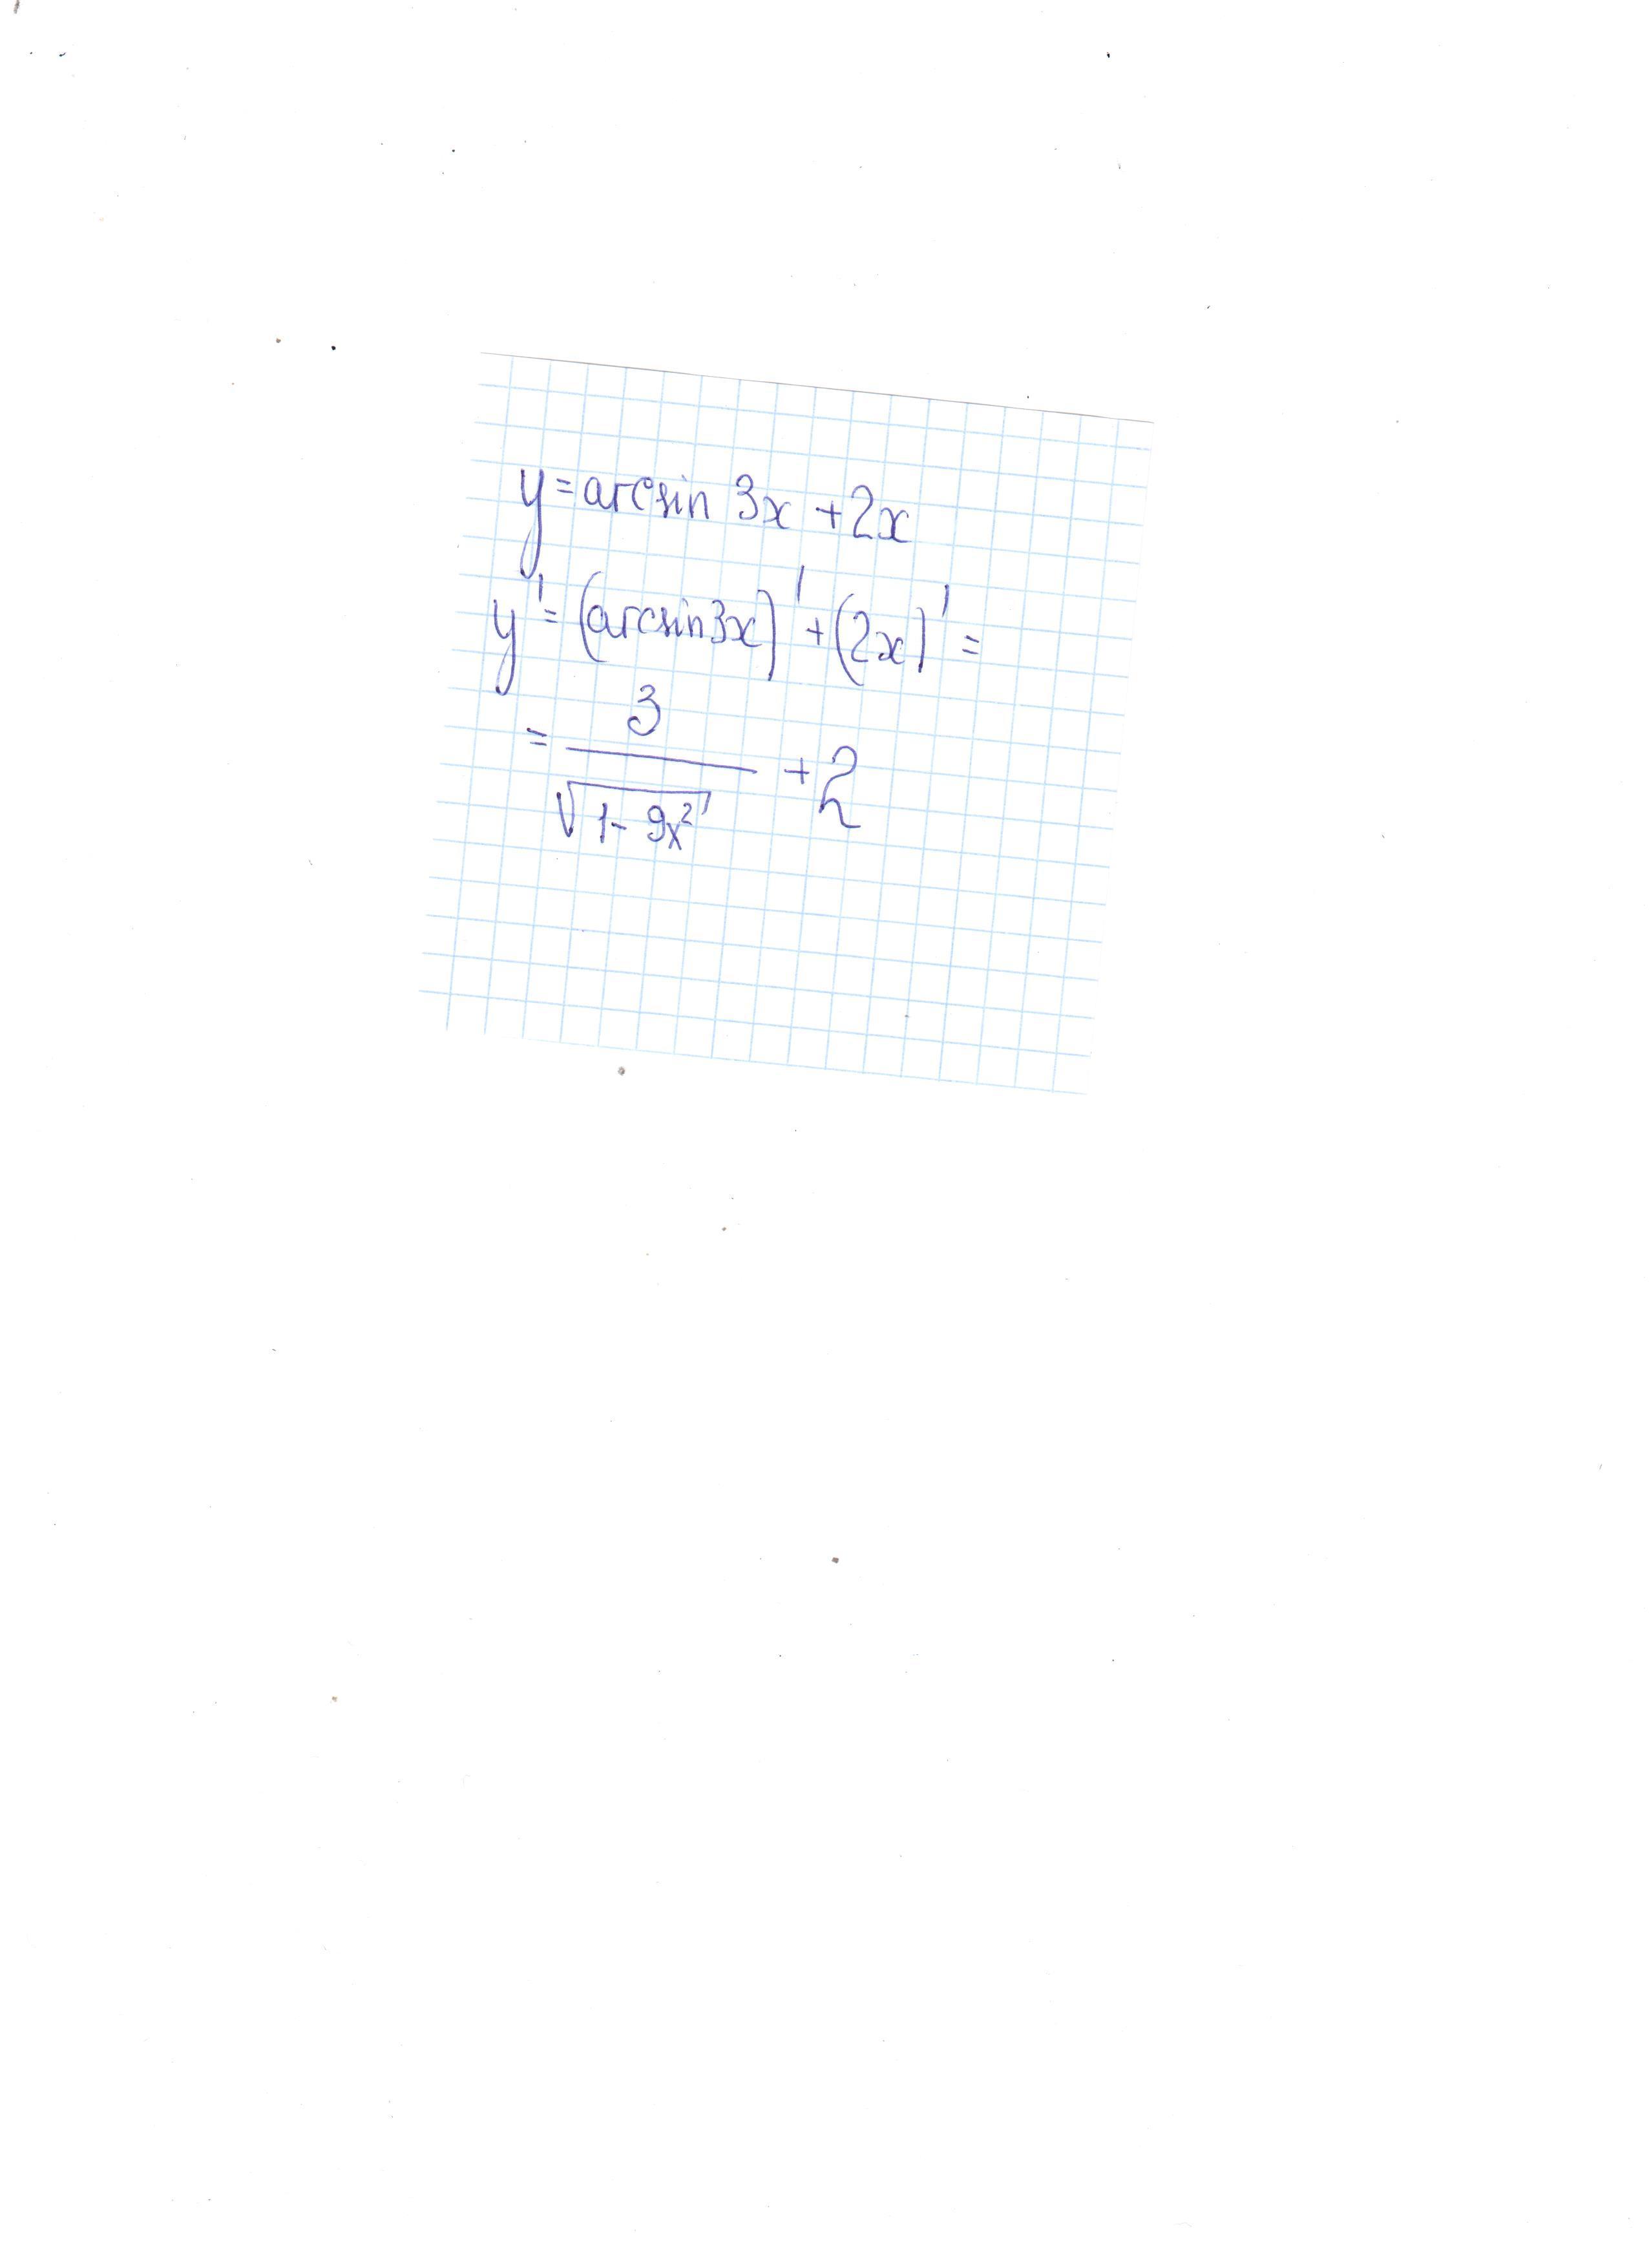 y = arcsin 3x + 2x
y' = (arcsin3x)' + (2x)' =
= 3/√(1 - 9x²) + 2